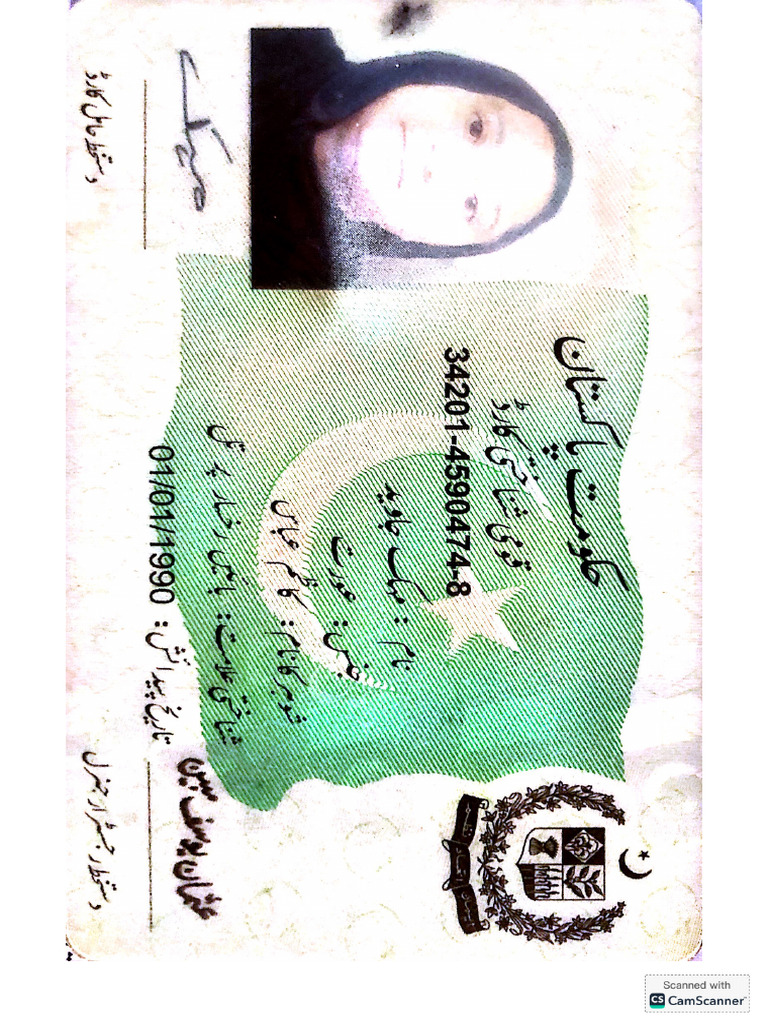 حکومت پاکستان
قومی شناختی کارڈ
34201-4590474-8
نام : مہک جاوید
جنس : عورت
شوہر کا نام : کاظم عباس
شناختی علامت : بائیں رخسار پر تل
تاریخ پیدائش : 01/01/1990
مہک
دستخط حامل کارڈ
عثمان یوسف مبین
دستخط رجسٹرار جنرل
Scanned with
CS CamScanner